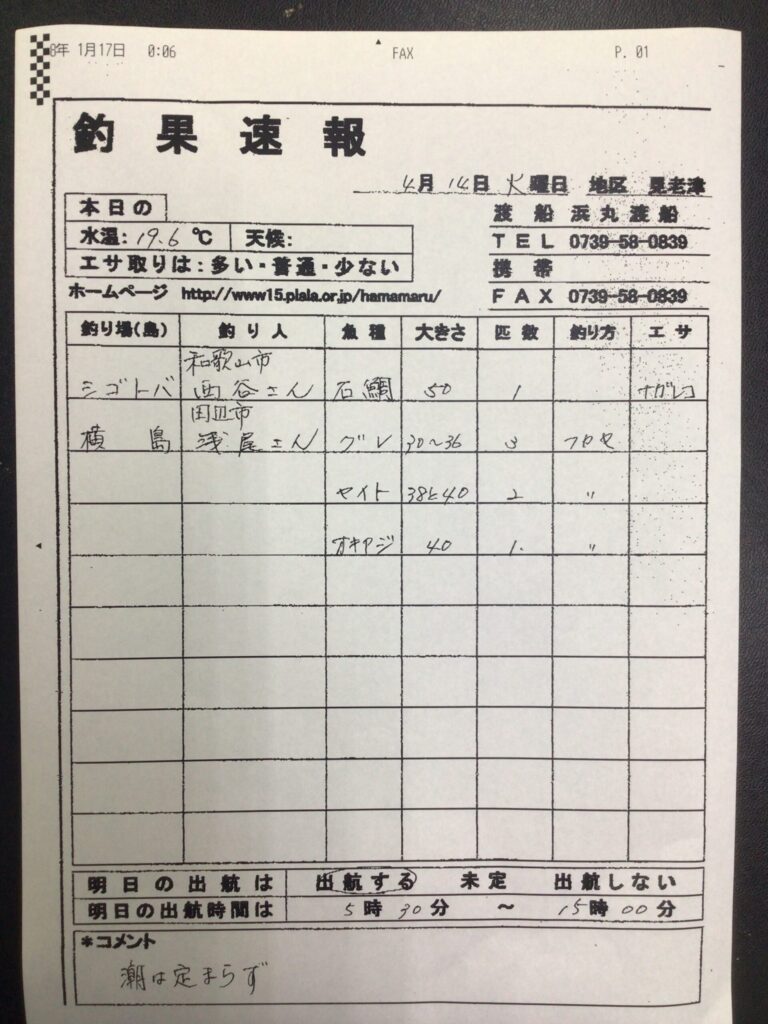 8年 1月17日 0:06 FAX P. 01
釣果速報
4月 14日 火曜日 地区 見老津
本日の
水温: 19.6 ℃ 天候:
エサ取りは:多い・普通・少ない
渡船 浜丸渡船
TEL 0739-58-0839
携帯
FAX 0739-58-0839
ホームページ http://www15.plala.or.jp/hamamaru/
釣り場(島) 釣り人 魚種 大きさ 匹数 釣り方 エサ
和歌山市
シゴトバ 西谷さん 石鯛 50 1 ナガレコ
田辺市
横島 浅尾さん グレ 30〜36 3 フカセ
セイト 38と40 2 〃
オキアジ 40 1. 〃
明日の出航は 出航する 未定 出航しない
明日の出航時間は 5時30分 〜 15時00分
*コメント
潮は定まらず